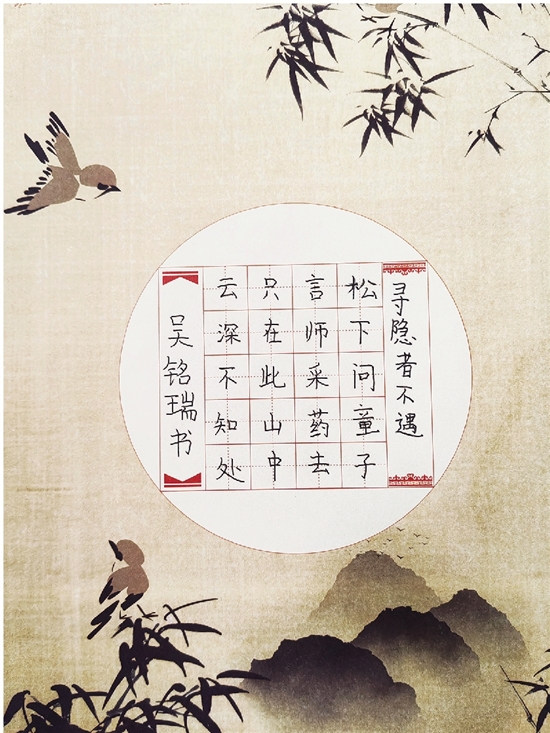 寻隐者不遇
松下问童子
言师采药去
只在此山中
云深不知处
吴铭瑞书